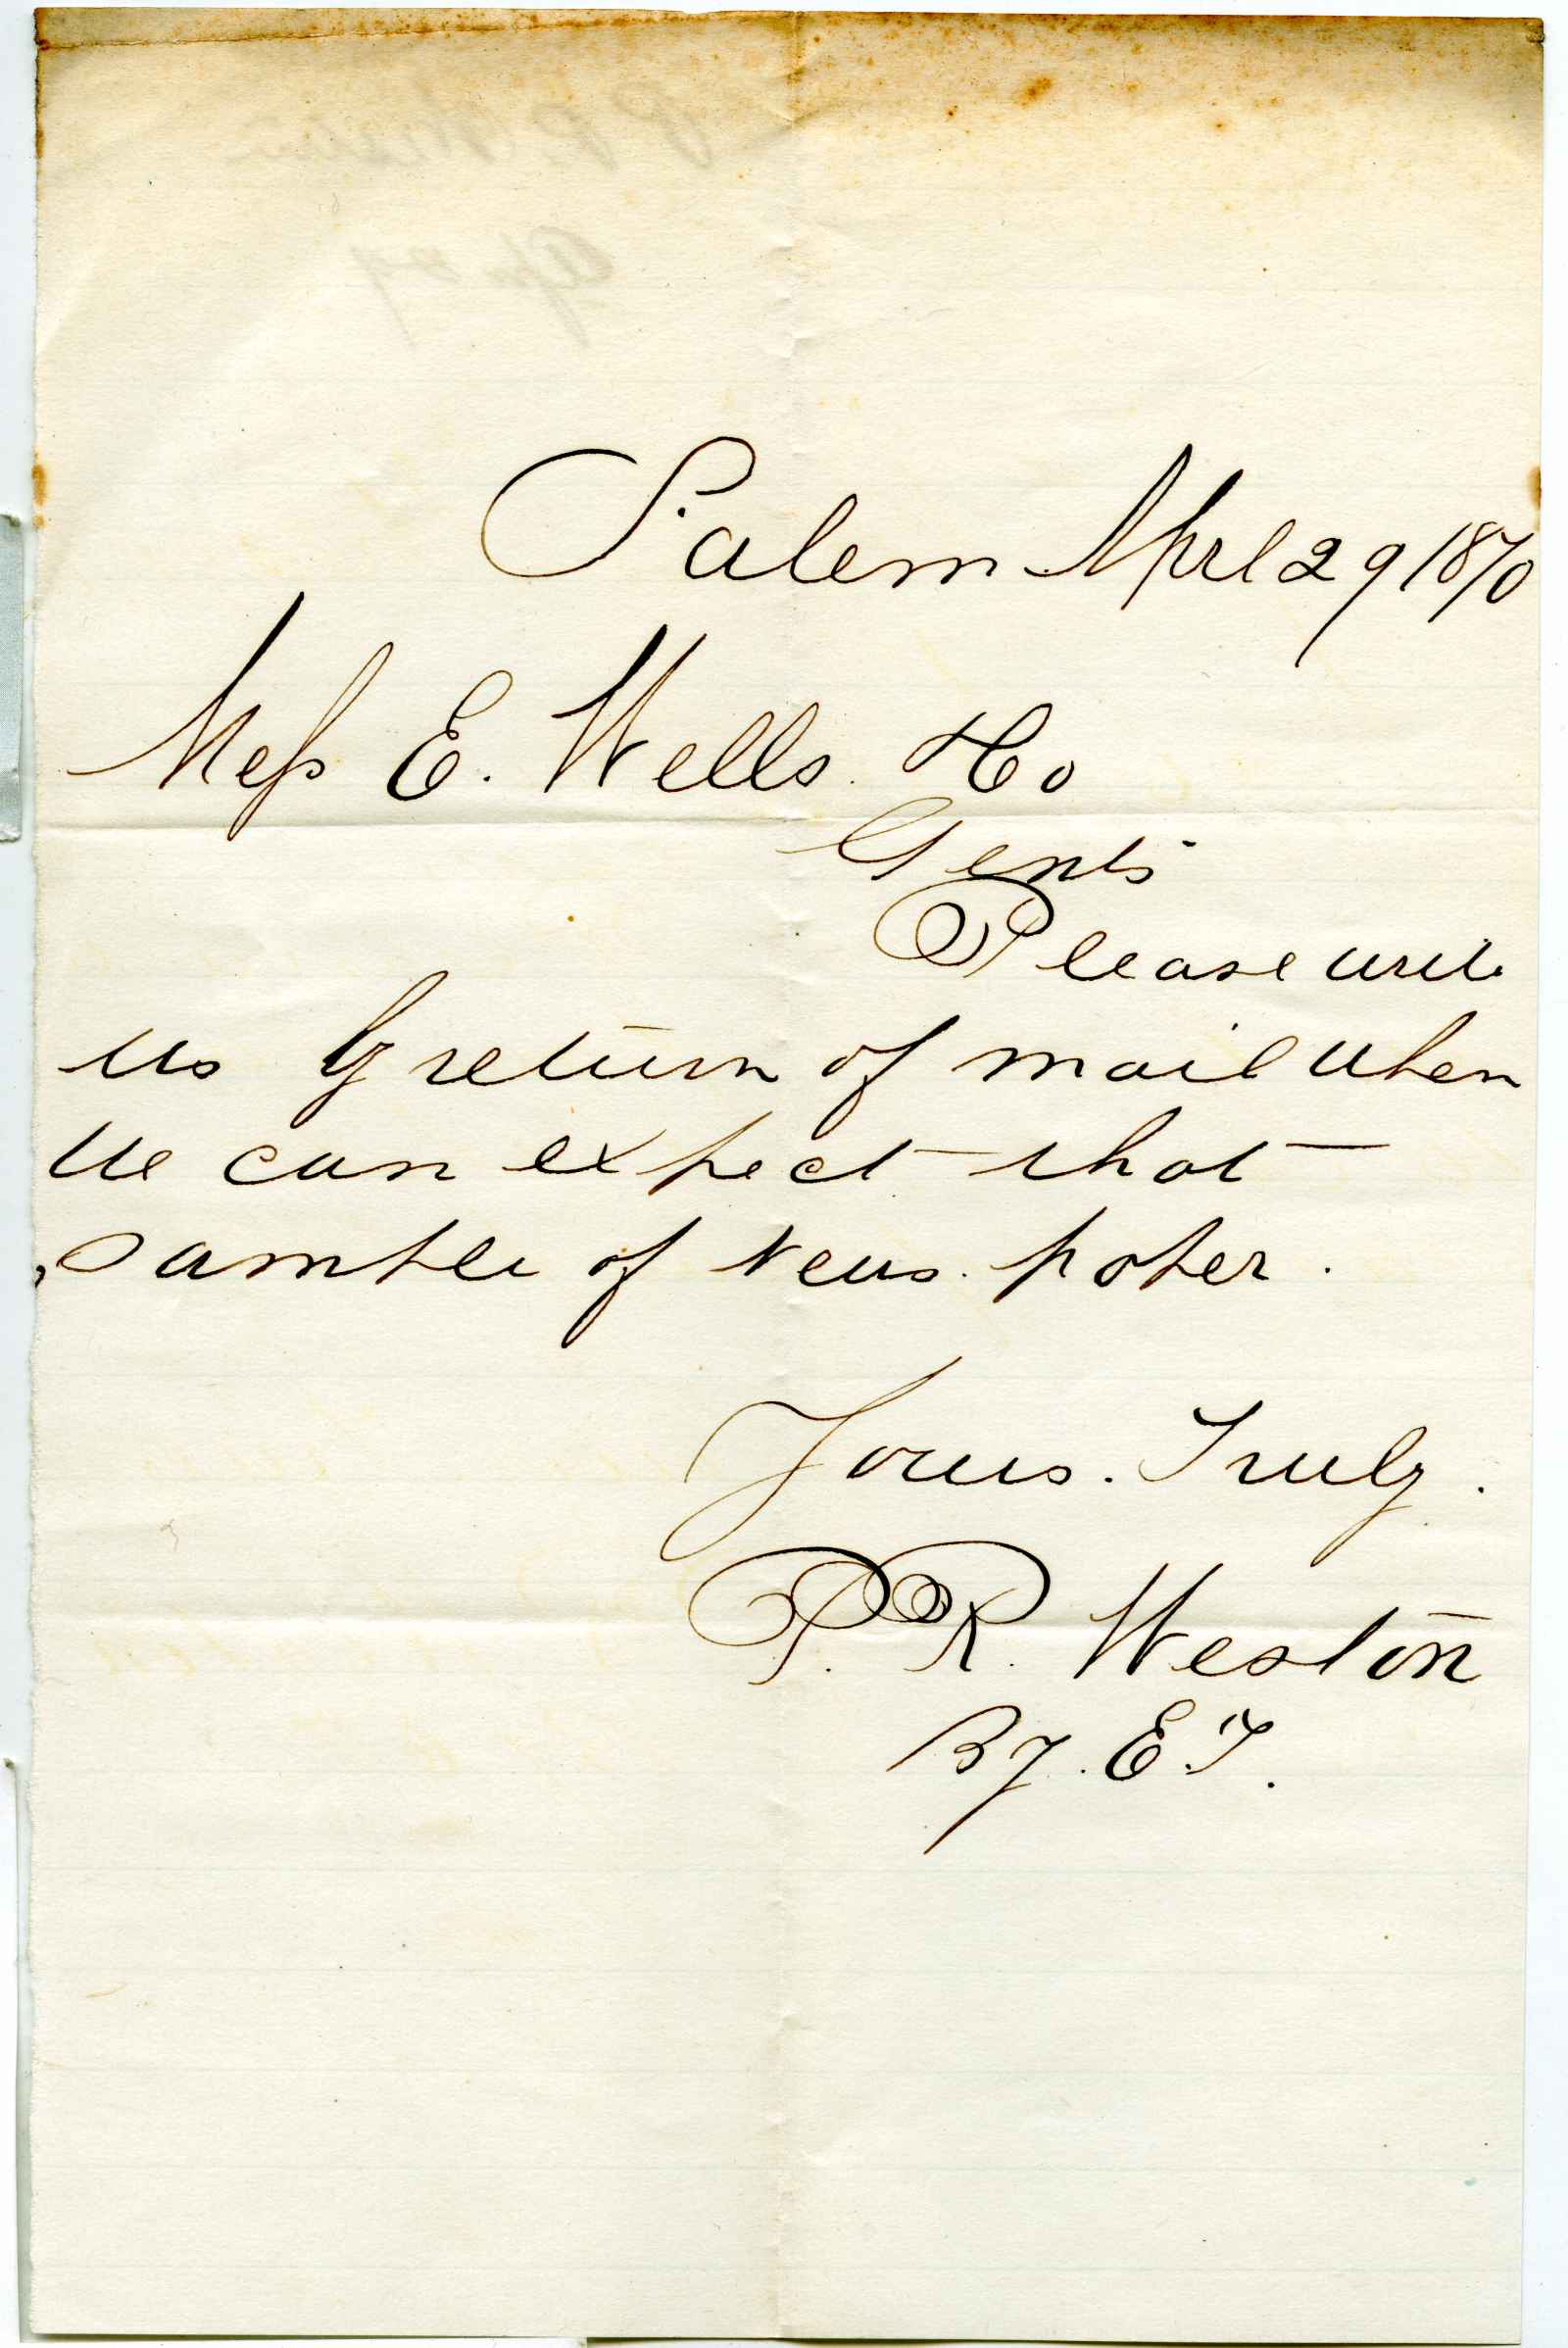 Salem Aprl 29 1870
Mess E. Wells & Co
Gents
Please write
us by return of mail when
we can expect that
sample of News paper.
Yours. Truly.
P. R. Weston
By. E.T.